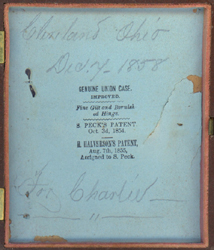 Cleveland Ohio
Dec 7 - 1858
GENUINE UNION CASE.
IMPROVED.
Fine Gilt and Burnished
Hinge.
S. PECK'S PATENT,
Oct. 3d, 1854.
H. HALVORSON'S PATENT,
Aug. 7th, 1855,
Assigned to S. Peck.
For Charlie